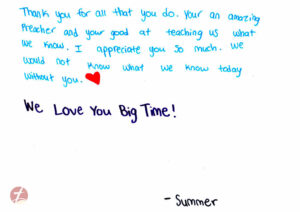 Thank you for all that you do. Your an amazing
Preacher and your good at teaching us what
we know. I appreciate you so much. We
would not know what we know today
without you.
We Love You Big Time!
- Summer